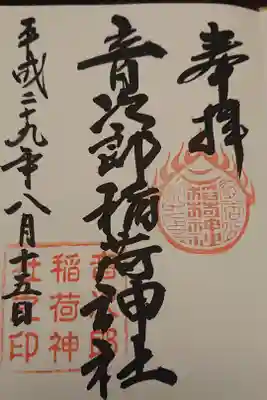 奉拝
音次郎稲荷神社
平成二十九年八月十五日
音次郎
稲荷神